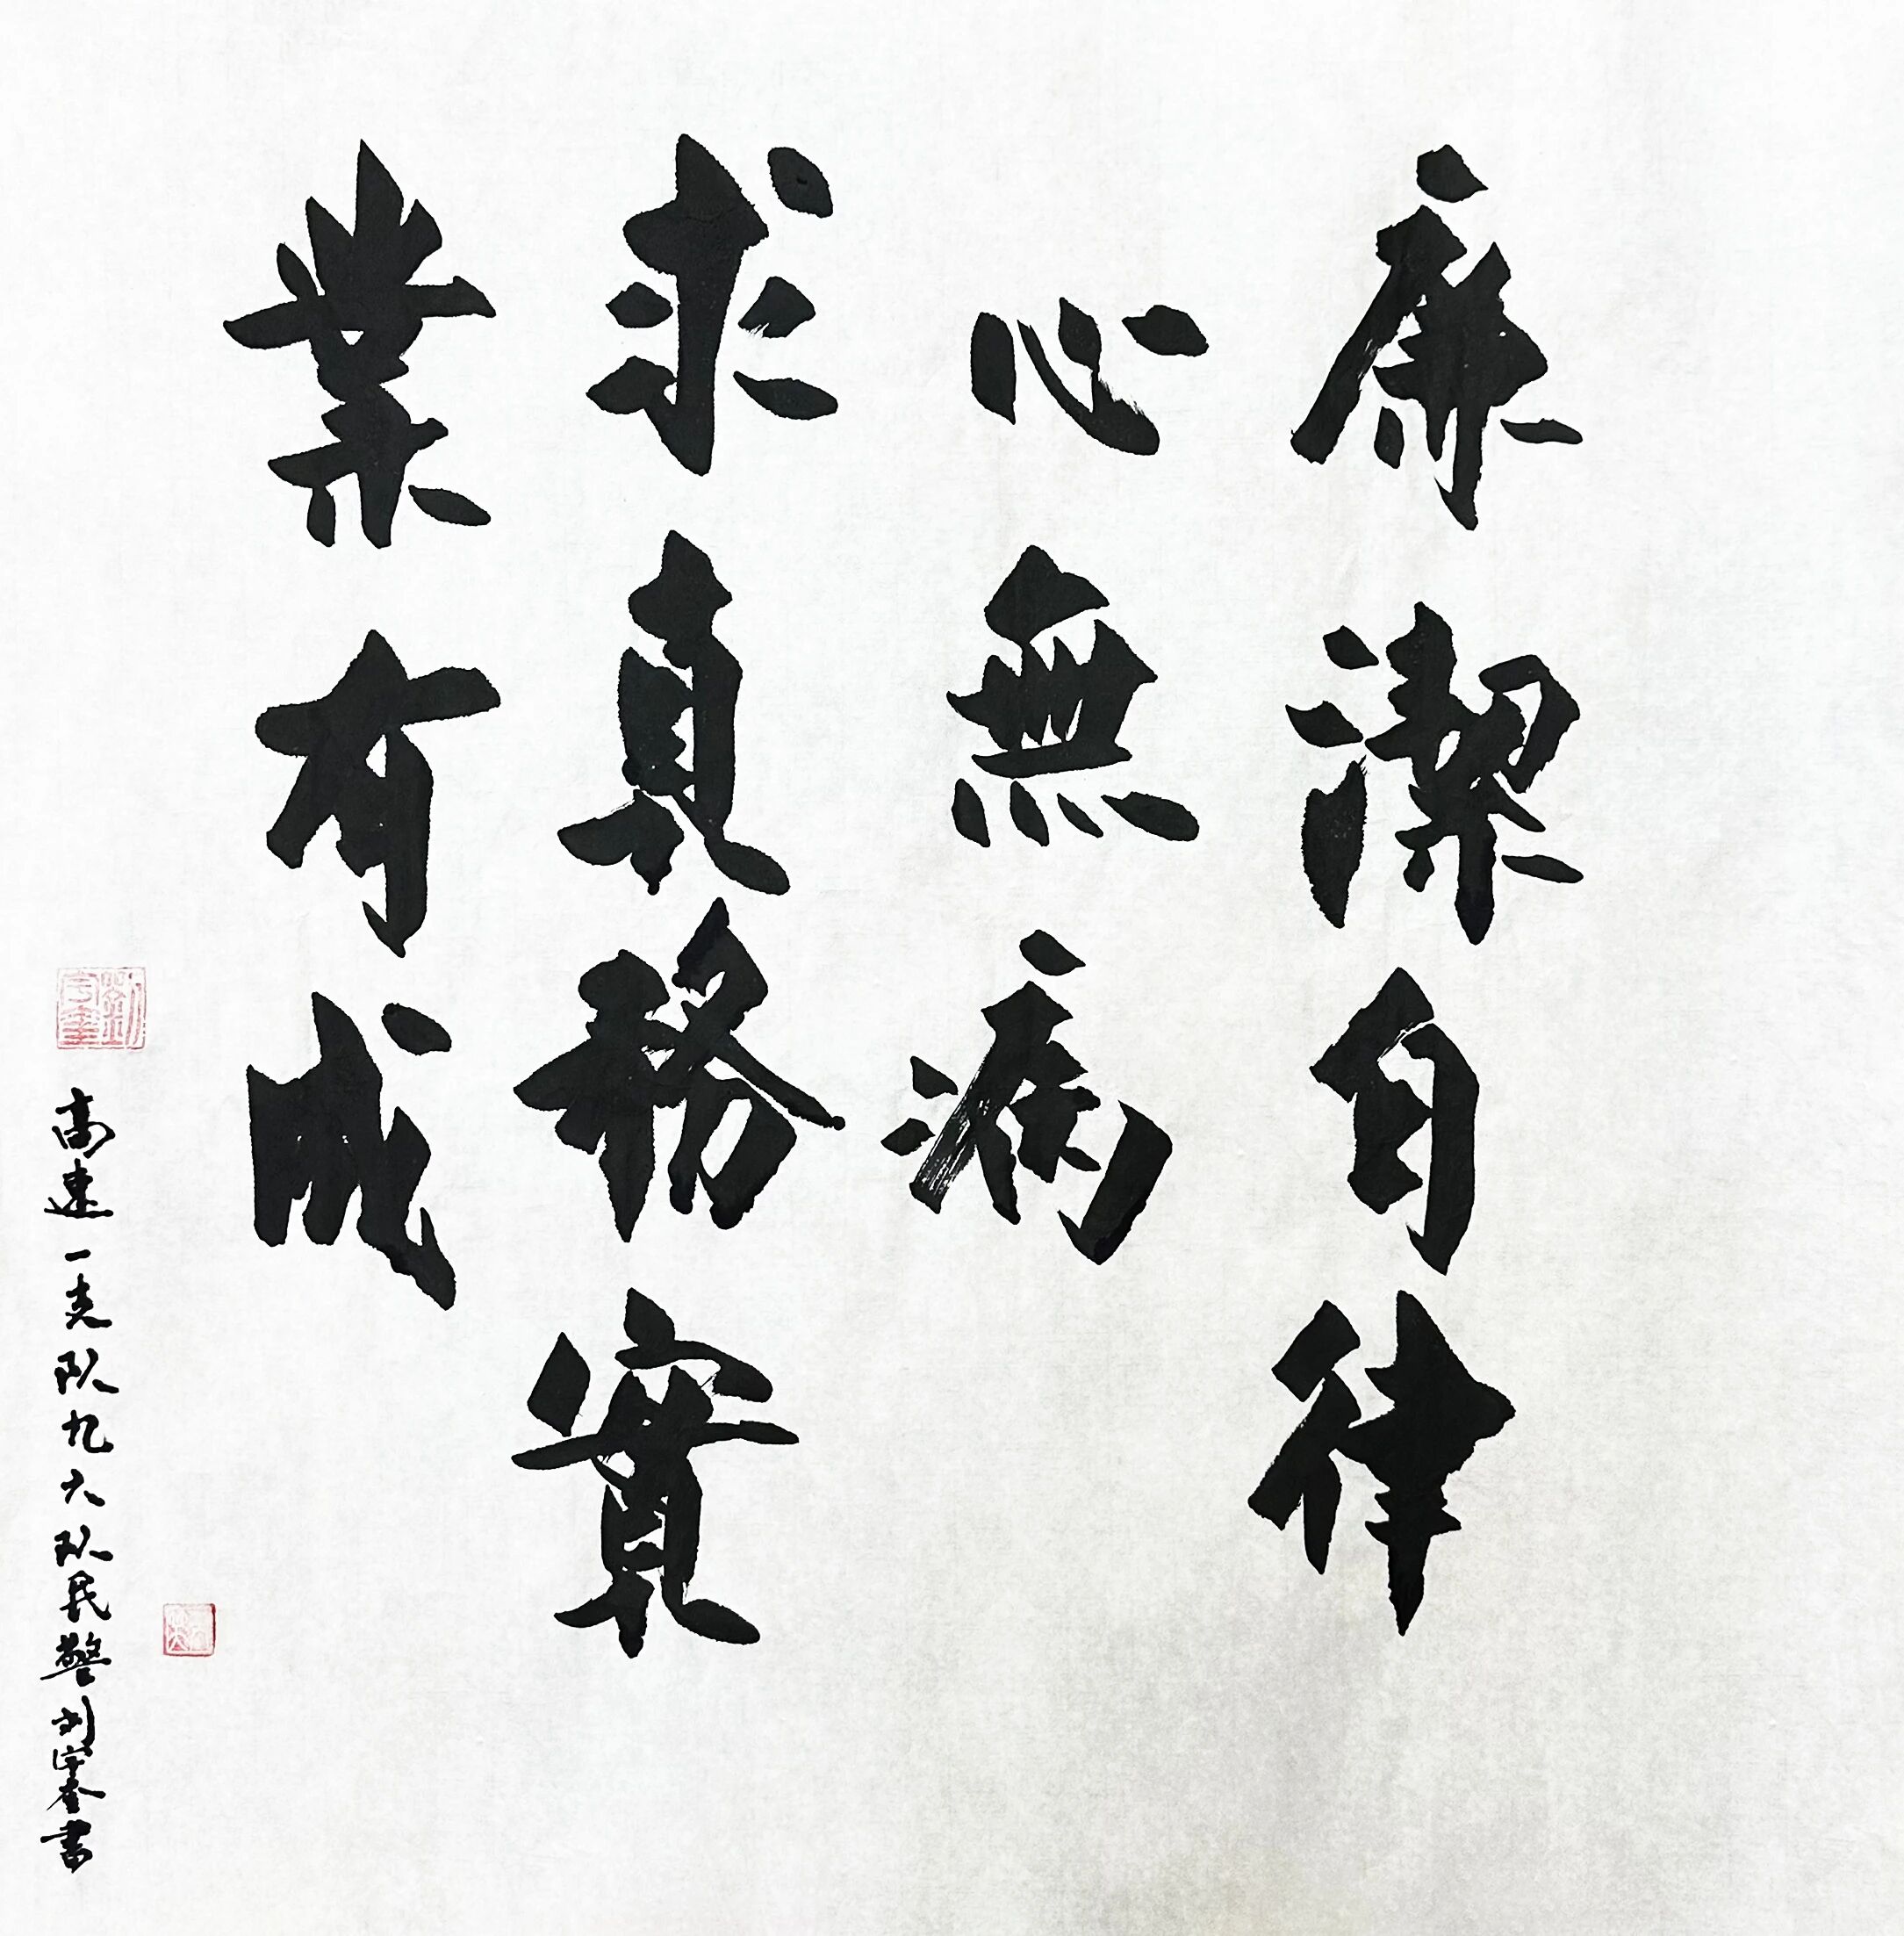 廉潔自律
心無病
求真務實
業有成
高速一支队九大队民警刘宇奎書